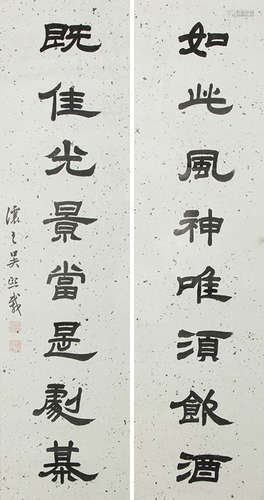 如此風神唯須飲酒
既佳光景當是劇棊
讓之吳熙載